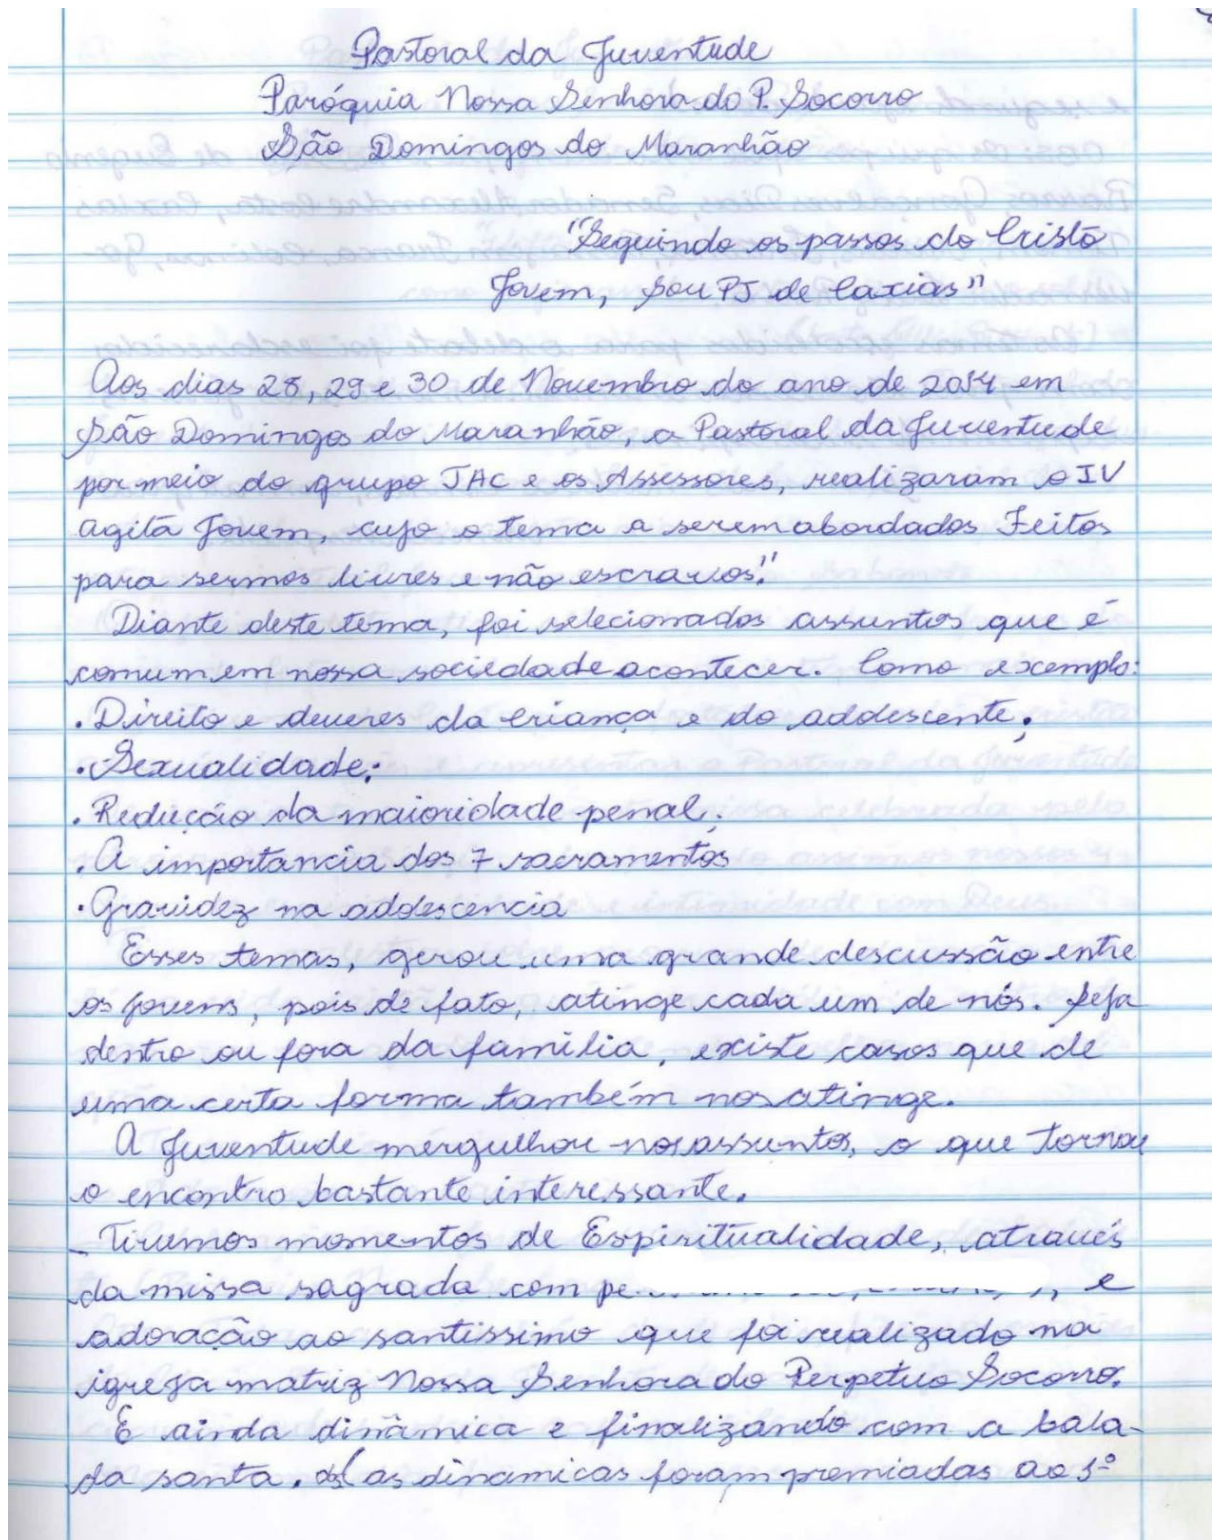 Pastoral da Juventude
Paróquia Nossa Senhora do P. Socorro
São Domingos do Maranhão
"Seguindo os passos do Cristo
Jovem, sou PJ de Caxias"
Aos dias 28, 29 e 30 de Novembro do ano de 2014 em
São Domingos do Maranhão, a Pastoral da Juventude
por meio do grupo JAC e os Assessores, realizaram o IV
agita Jovem, cujo o tema a serem abordados Feitos
para sermos livres e não escravos."
Diante deste tema, foi selecionados assuntos que é
comum em nossa sociedade acontecer. Como exemplo:
. Direito e deveres da criança e do addescente;
. Sexualidade;
. Redução da maioridade penal;
. A importancia dos 7 sacramentos
. Gravidez na addescencia
Esses temas, gerou uma grande descussão entre
os jovens, pois de fato, atinge cada um de nós. Seja
dentro ou fora da família, existe casos que de
uma certa forma também nos atinge.
A Juventude mergulhou nos assuntos, o que tornou
o encontro bastante interessante.
Tivemos momentos de Espiritualidade, através
da missa sagrada com e
adoração ao santissimo que foi realizado na
igreja matriz Nossa Senhora do Perpetuo Socorro.
E ainda dinâmica e finalizando com a bala-
da santa. as dinamicas foram premiadas ao 1º